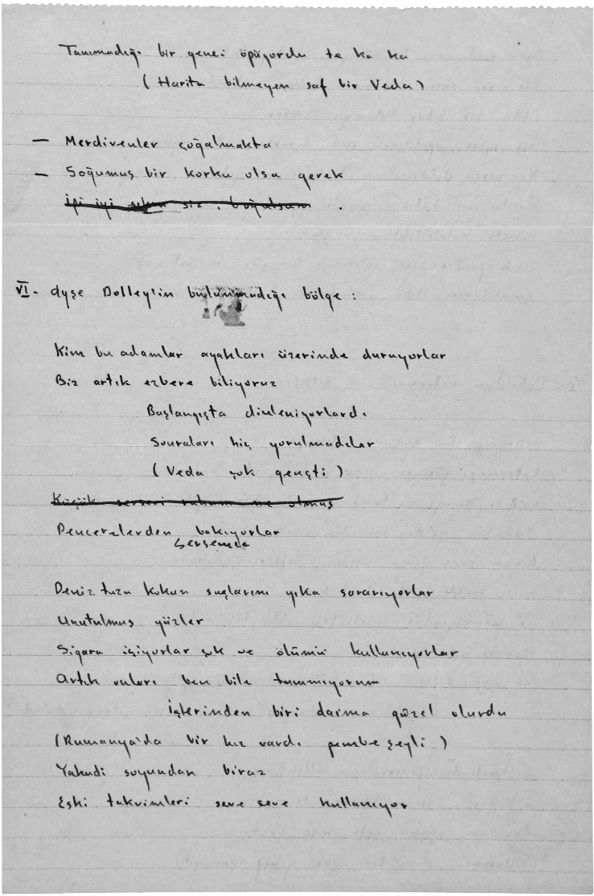 Tanımadığı bir genci öpüyordu te ka ka
(Harita bilmeyen saf bir Veda)
— Merdivenler çoğalmakta
— Soğumuş bir korku olsa gerek
İpi iyi siz, boğulsam.
VI- Ayşe Dolley'in bulunmadığı bölge:
Kim bu adamlar ayakları üzerinde duruyorlar
Biz artık ezbere biliyoruz
Başlangıçta dinleniyorlardı
Sonraları hiç yorulmadılar
(Veda çok gençti)
Küçük serseri ruhum ne olmuş
Pencerelerden bakıyorlar
Sersemce
Deniz tuzu kokan saçlarını yıka sararıyorlar
Unutulmuş yüzler
Sigara içiyorlar çok ve ölümü kullanıyorlar
Artık onları ben bile tanımıyorum
İçlerinden biri daima güzel olurdu
(Rumanya'da bir kız vardı pembe şeyli)
Yahudi soyundan biraz
Eski takvimleri seve seve kullanıyor